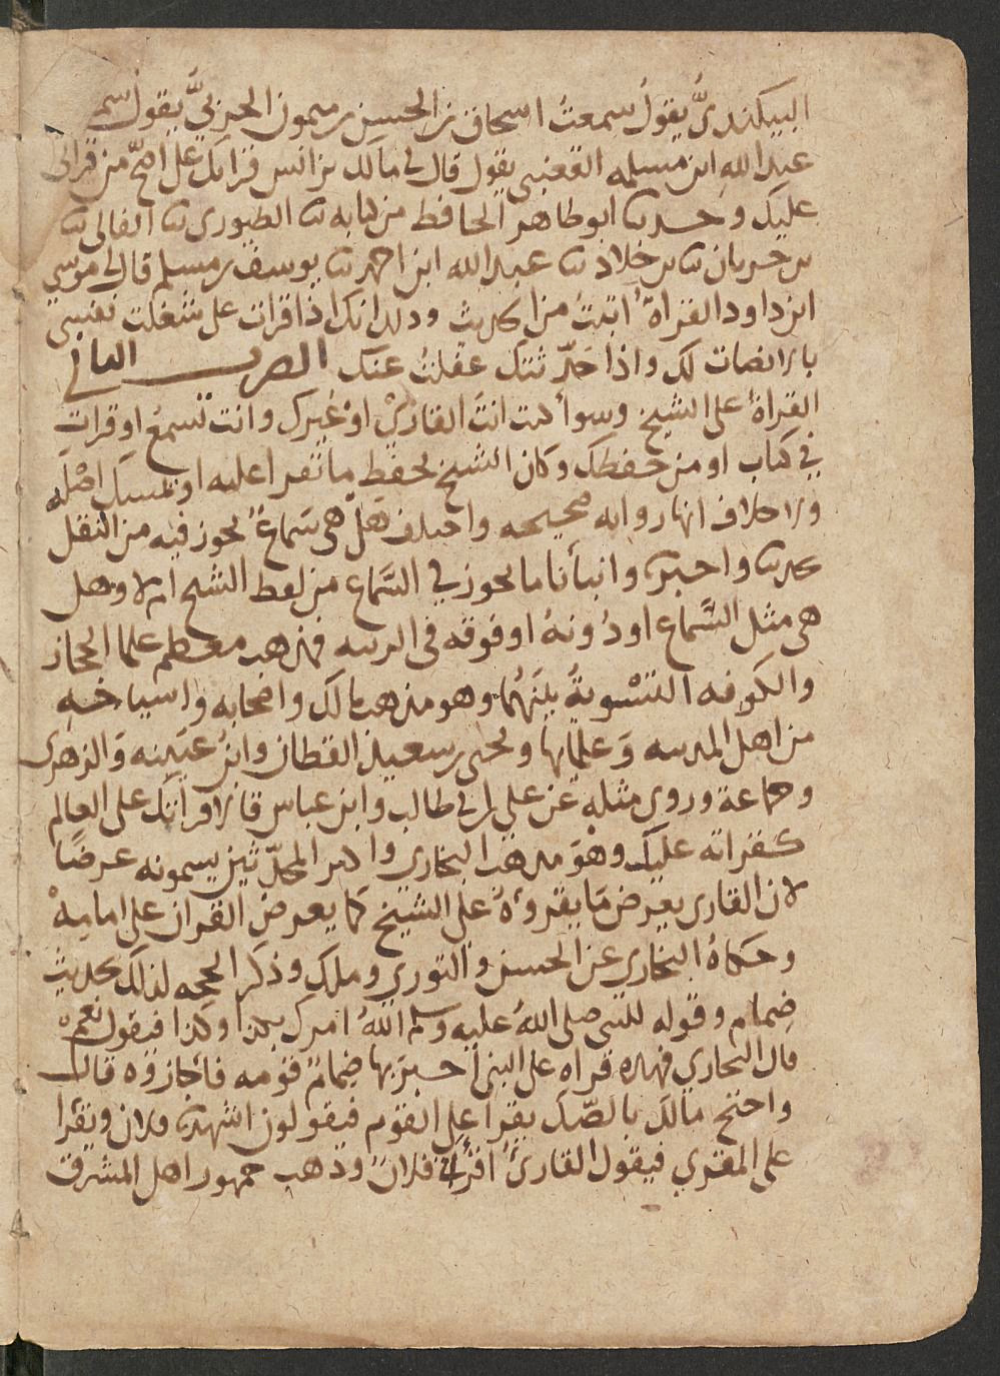 البيكندي يقول سمعت اسحاق بن الحسين بن ميمون الحربي يقول سمعت
عبد الله ابن مسلمه القعنبي يقول قال لي مالك بن انس قرأتك علي اصح من قراتي
عليك وحدثنا ابو طاهر الحافظ من كتابه نا الطيوري نا الفالي نا
بن خربان نا بن خلاد نا عبد الله ابن احمد نا يوسف بن مسلم قال لي موسي
ابن داود القراة اثبت من الحديث وذلك انك اذا قرات علي شغلت نفسي
بالانصات لك واذا حدثتك غفلت عنك الضرب الثاني
القراة علي الشيخ وسوا كنت انت القاري او غيرك وانت تسمع او قرات
في كتاب او من حفظك وكان الشيخ يحفظ ما تقرا عليه او يمسك اصله
ولا خلاف انها روايه صحيحه واختلف هل هي سماع يجوز فيه من النقل
حدثنا واخبرنا وانبأنا ما يجوز في السماع من لفظ الشيخ ام لا وهل
هي مثل السماع او دونه او فوقه في الرتبه فمذهب معظم علما الحجاز
والكوفه التسوية بينهما وهو مذهب مالك واصحابه واشياخه
من اهل المدينه وعلمايها ويحيي بن سعيد القطان وابن عيينه والزهري
وجماعة وروي مثله عن علي بن ابي طالب وابن عباس قالا قراتك علي العالم
كقراته عليك وهو مذهب البخاري واكثر المحدثين يسمونه عرضا
لان القاري يعرض ما يقروه علي الشيخ كما يعرض القران علي امامه
وحكاه البخاري عن الحسن والثوري وملك وذكر الحجه لذلك بحديث
ضمام وقوله للنبي صلي الله عليه وسلم آلله امرك بكذا وكذا فيقول نعم
قال البخاري فهذه قراه علي النبي أخبر بها ضمام قومه فأجازوه قال
واحتج مالك بالصك يقرا علي القوم فيقولون اشهدنا فلان ويقرا
علي المقري فيقول القاري اقراني فلان وذهب جمهور اهل المشرق